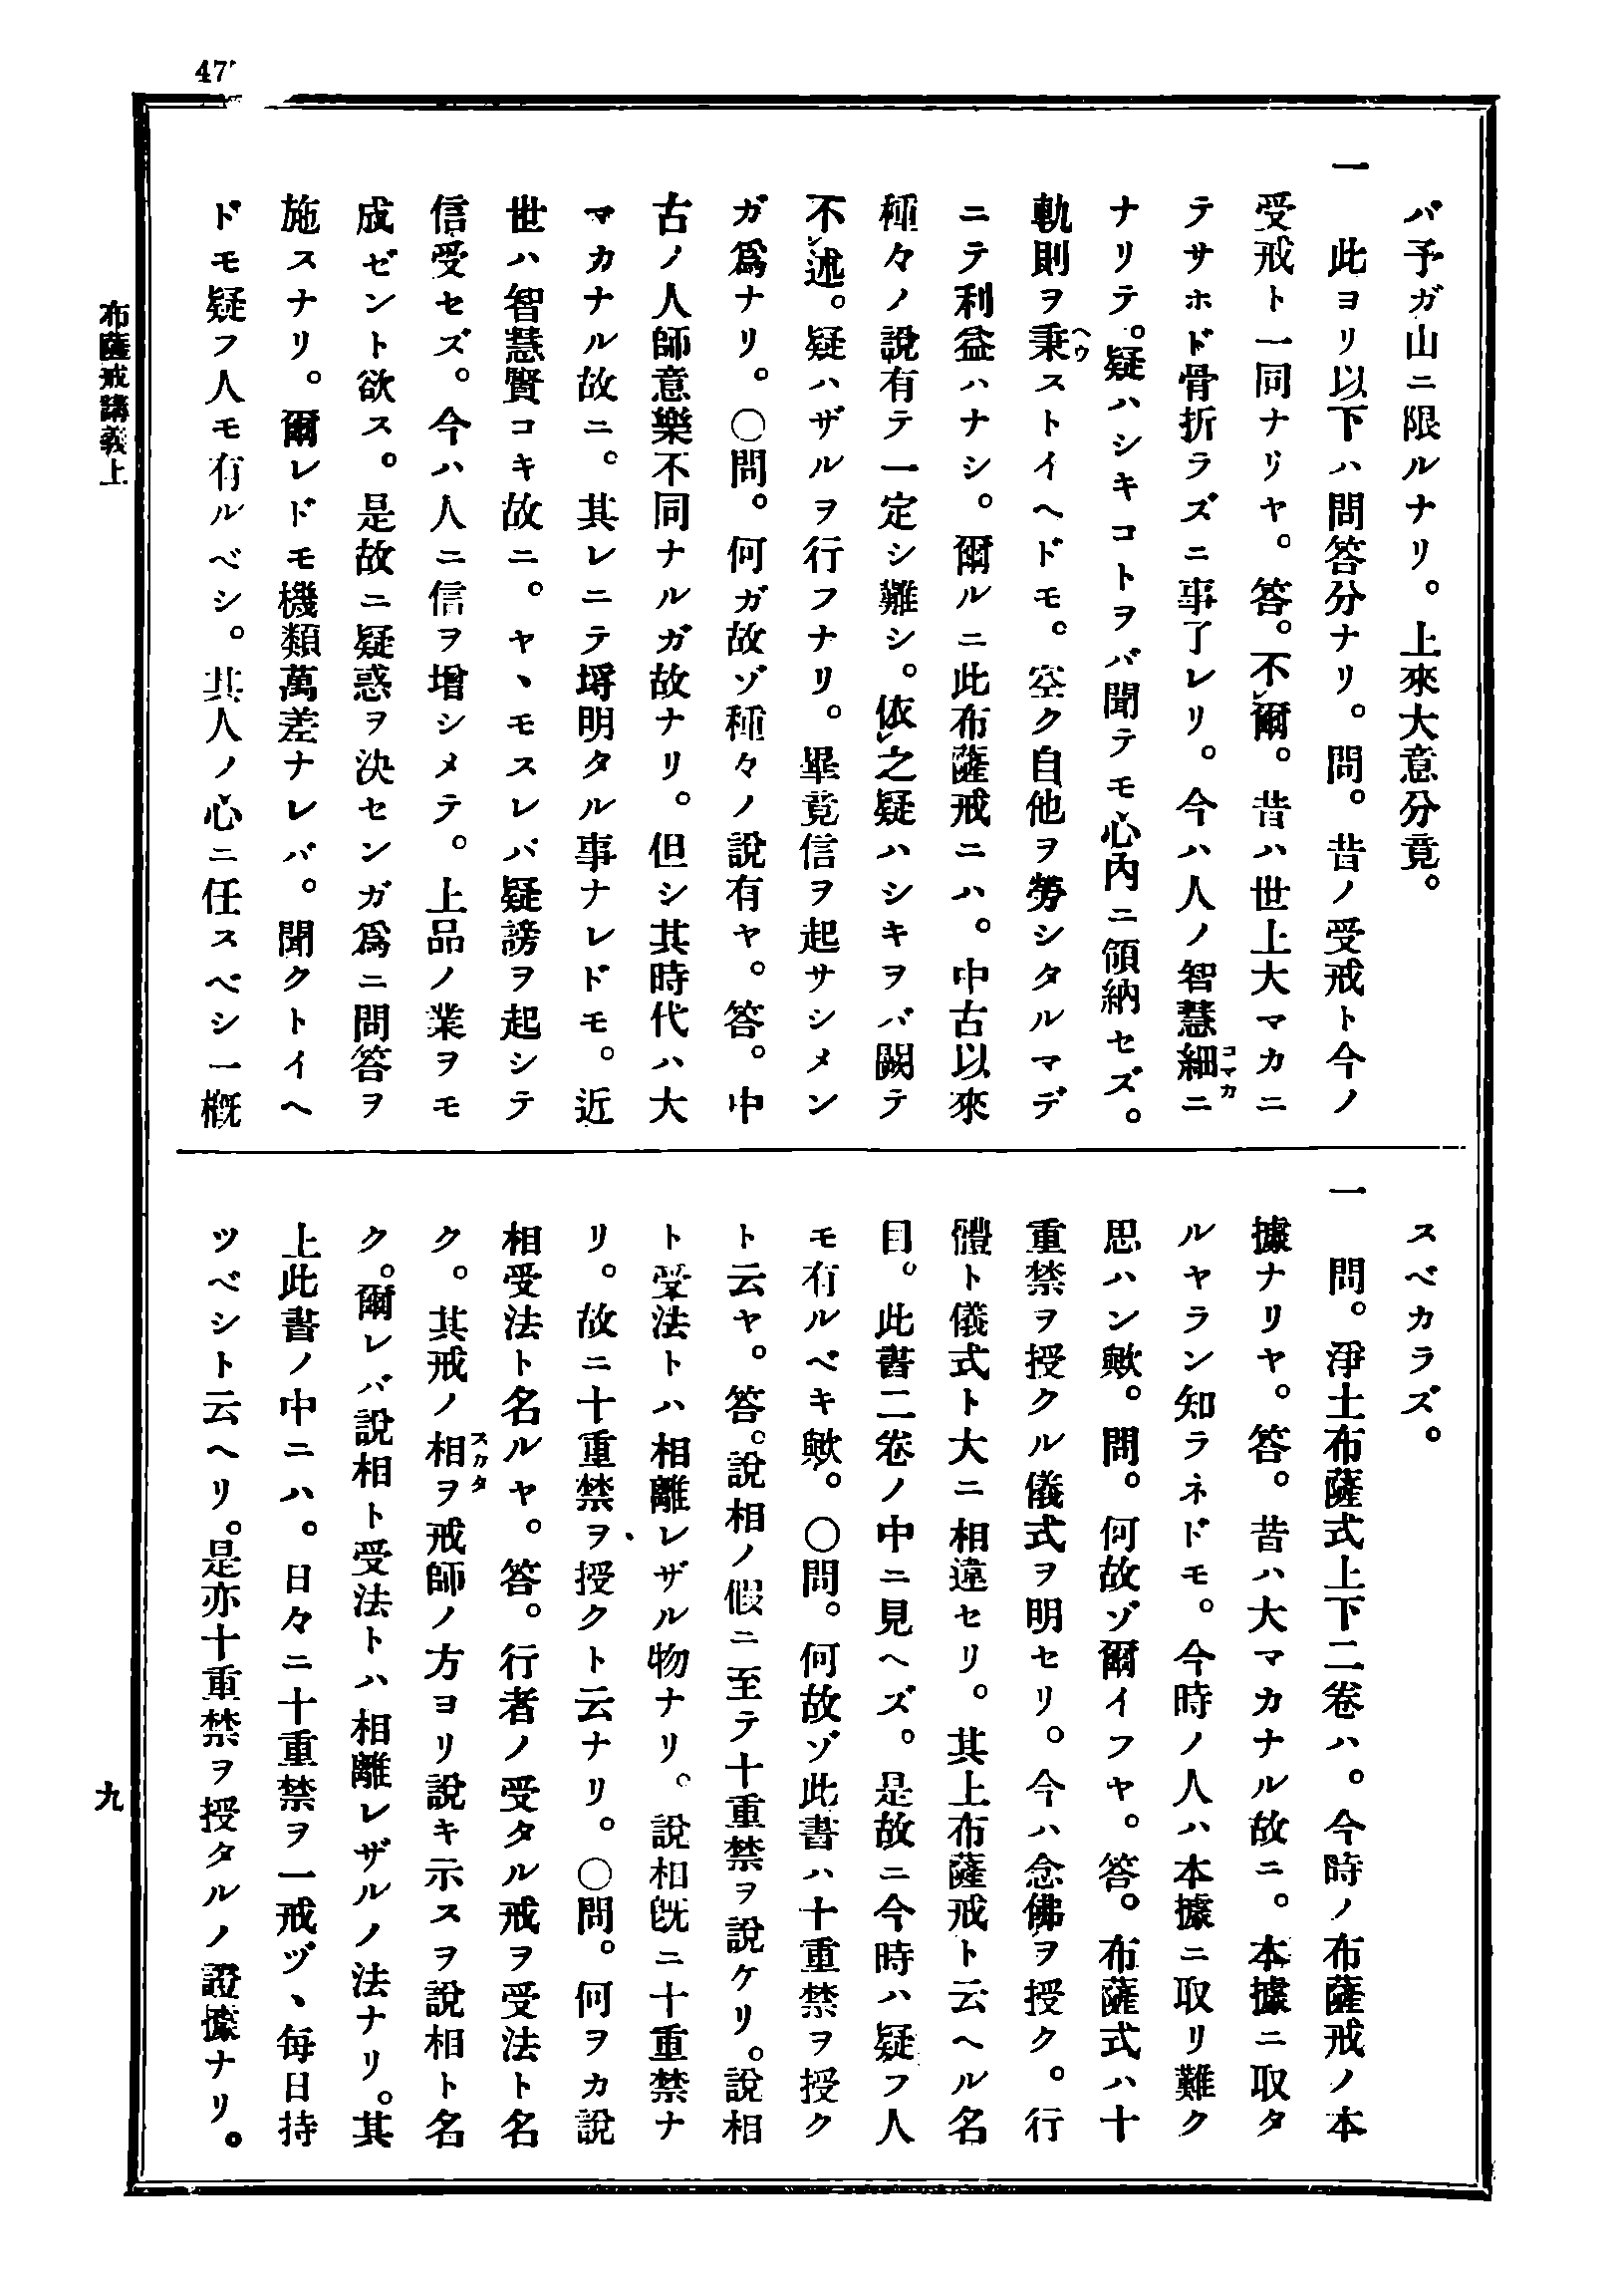 47
バ予ガ山ニ限ルナリ。上來大意分竟。
一 此ヨリ以下ハ問答分ナリ。問。昔ノ受戒ト今ノ
受戒ト一同ナリヤ。答。不レ爾。昔ハ世上大マカニ
テサホド骨折ラズニ事了レリ。今ハ人ノ智慧細コマカニ
ナリテ。疑ハシキコトヲバ聞テモ心內ニ領納セズ。
軌則ヲ秉ヘウストイヘドモ。空ク自他ヲ勞シタルマデ
ニテ利益ハナシ。爾ルニ此布薩戒ニハ。中古以來
種々ノ說有テ一定シ難シ。依レ之疑ハシキヲバ闕テ
不レ述。疑ハザルヲ行フナリ。畢竟信ヲ起サシメン
ガ爲ナリ。〇問。何ガ故ゾ種々ノ說有ヤ。答。中
古ノ人師意樂不同ナルガ故ナリ。但シ其時代ハ大
マカナル故ニ。其レニテ埒明タル事ナレドモ。近
世ハ智慧賢コキ故ニ。ヤヽモスレバ疑謗ヲ起シテ
信受セズ。今ハ人ニ信ヲ增シメテ。上品ノ業ヲモ
成ゼント欲ス。是故ニ疑惑ヲ決センガ爲ニ問答ヲ
施スナリ。爾レドモ機類萬差ナレバ。聞クトイヘ
ドモ疑フ人モ有ルベシ。其人ノ心ニ任スベシ一槪
スベカラズ。
一 問。淨土布薩式上下二卷ハ。今時ノ布薩戒ノ本
據ナリヤ。答。昔ハ大マカナル故ニ。本據ニ取タ
ルヤラン知ラネドモ。今時ノ人ハ本據ニ取リ難ク
思ハン歟。問。何故ゾ爾イフヤ。答。布薩式ハ十
重禁ヲ授クル儀式ヲ明セリ。今ハ念佛ヲ授ク。行
體ト儀式ト大ニ相違セリ。其上布薩戒ト云ヘル名
目。此書二卷ノ中ニ見ヘズ。是故ニ今時ハ疑フ人
モ有ルベキ歟。〇問。何故ゾ此書ハ十重禁ヲ授ク
ト云ヤ。答。說相ノ假ニ至テ十重禁ヲ說ケリ。說相
ト受法トハ相離レザル物ナリ。說相旣ニ十重禁ナ
リ。故ニ十重禁ヲ授クト云ナリ。〇問。何ヲカ說
相受法ト名ルヤ。答。行者ノ受タル戒ヲ受法ト名
ク。其戒ノ相スカタヲ戒師ノ方ヨリ說キ示スヲ說相ト名
ク。爾レバ說相ト受法トハ相離レザルノ法ナリ。其
上此書ノ中ニハ。日々ニ十重禁ヲ一戒ヅヽ每日持
ツベシト云ヘリ。是亦十重禁ヲ授タルノ證據ナリ。
布薩戒講義上
九